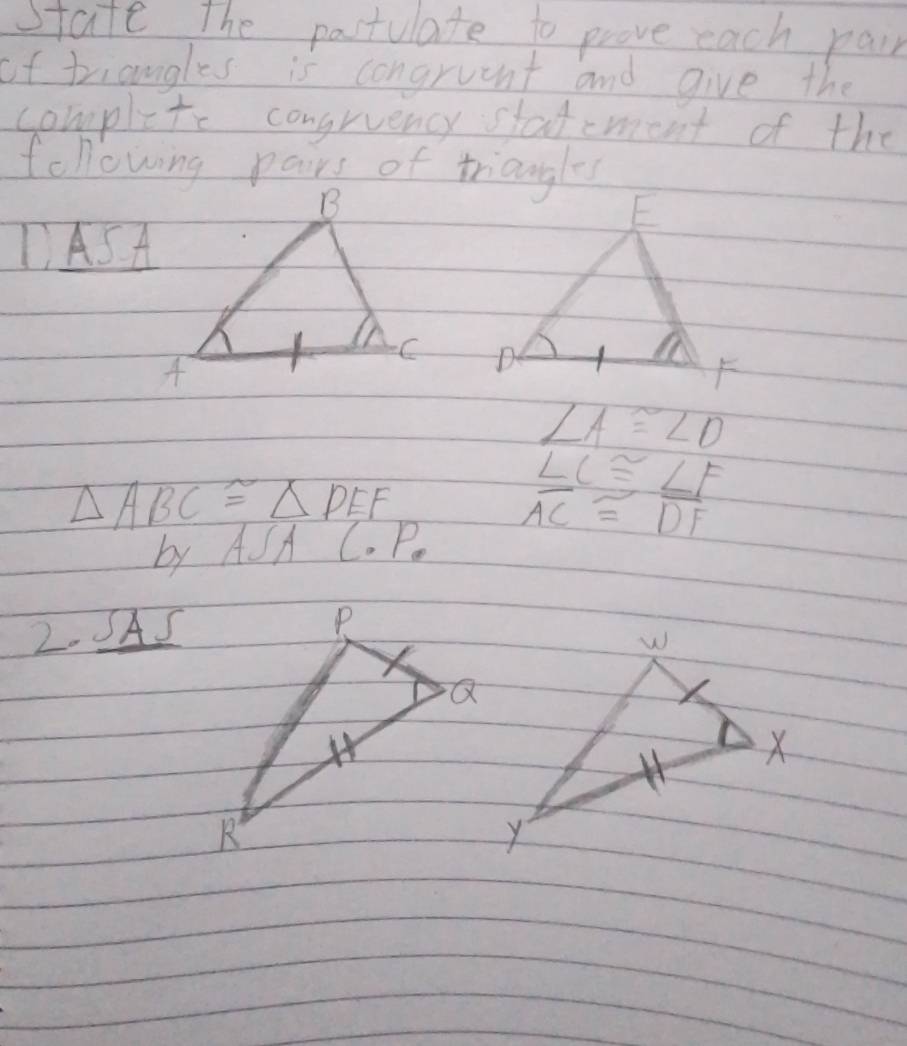 State the pastulate to prove each pair
of triangles is congruent and give the
complete congruency statement of the
following pairs of triangles
B
E
1) ASA
A
C
D
F
∠A ≅ ∠D
∠C ≅ ∠F
△ABC ≅ △DEF
AC ≅ DF
by ASA C.P.
2. SAS
P
W
Q
X
R
Y